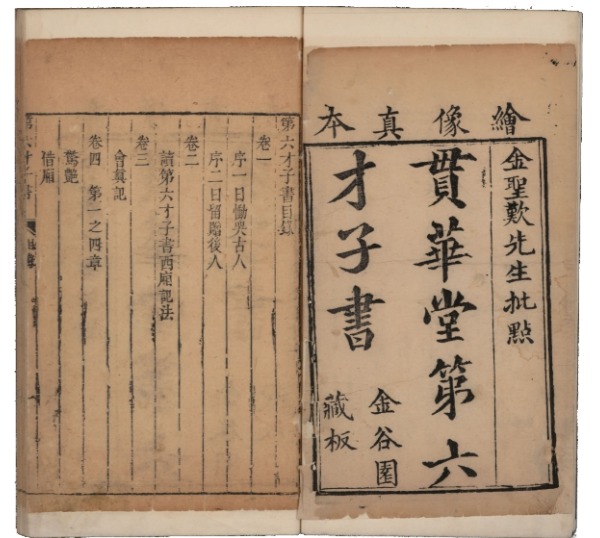 繪像真本
金聖歎先生批點
貫華堂第六
才子書
金谷園
藏板
第六才子書目錄
卷一
序一曰慟哭古人
序二曰留贈後人
卷二
讀第六才子書西廂記法
卷三
會真記
卷四　第一之四章
驚艷
借廂
第六才子書